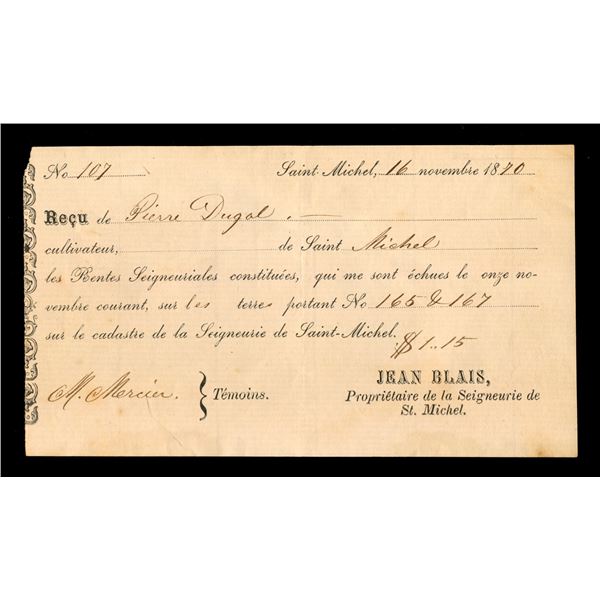 No 107 Saint-Michel, 16 novembre 1870
Reçu de Pierre Dugal.
cultivateur, de Saint Michel
les Rentes Seigneuriales constituées, qui me sont échues le onze no-
vembre courant, sur les terres portant No 165 & 167
sur le cadastre de la Seigneurie de Saint-Michel. $1..15
M. Mercier. } Témoins.
JEAN BLAIS,
Propriétaire de la Seigneurie de
St. Michel.